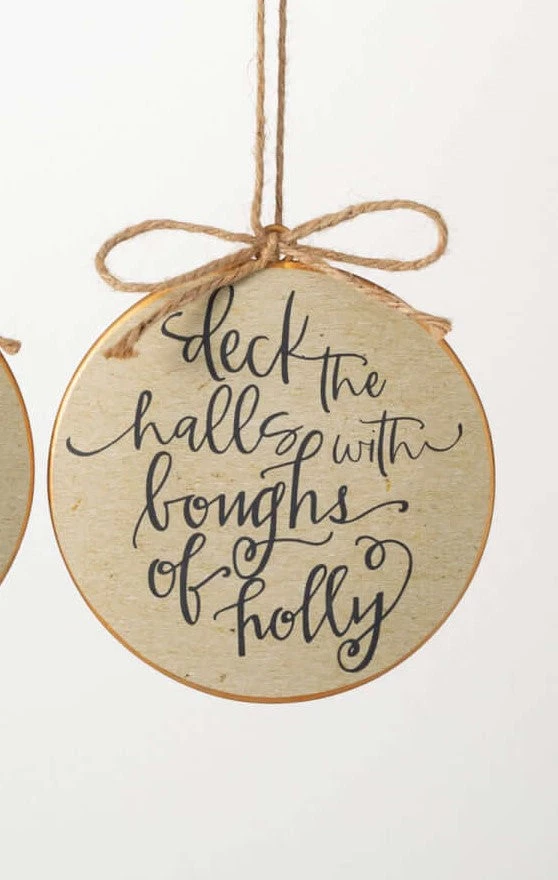 deck the
halls with
boughs
of holly